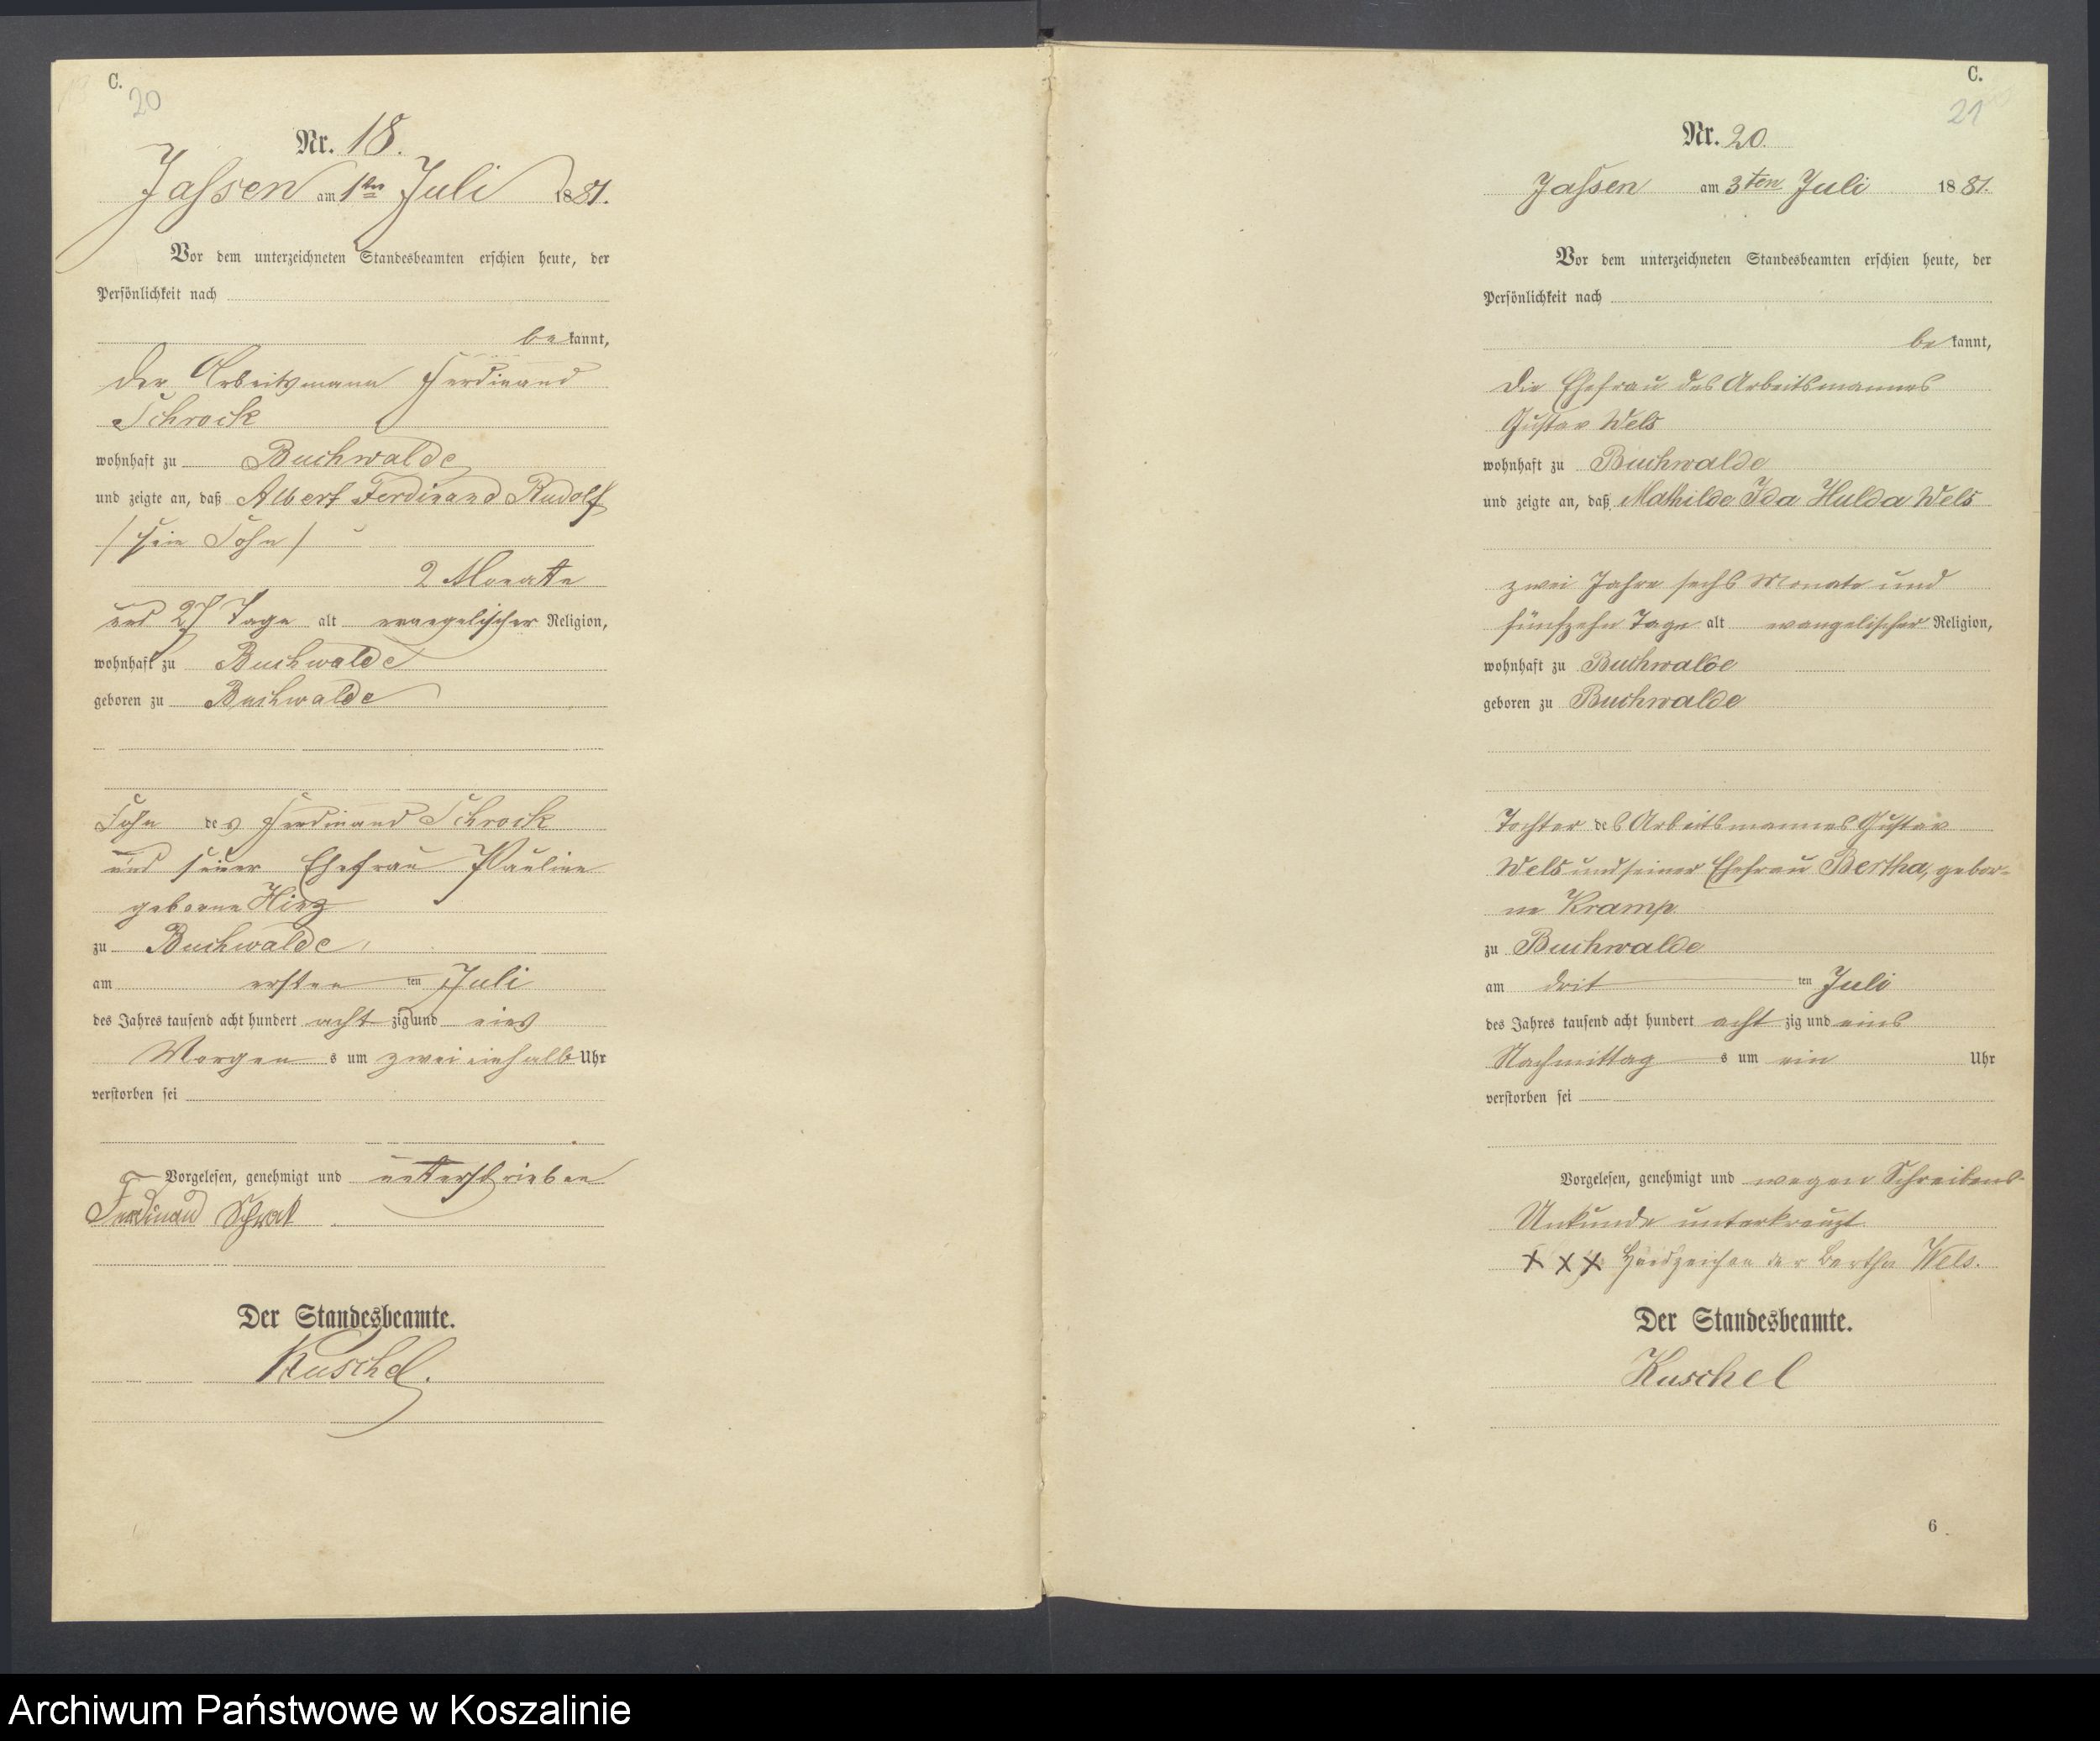 C.
20
Nr. 18.
Jassen am 1ten Juli 1881.
Vor dem unterzeichneten Standesbeamten erschien heute, der
Persönlichkeit nach
bekannt,
der Arbeitsmann Ferdinand
Schrock
wohnhaft zu Buchwalde
und zeigte an, daß Albert Ferdinand Rudolf
/ sein Sohn /
2 Monate
und 27 Tage alt evangelischer Religion,
wohnhaft zu Buchwalde
geboren zu Buchwalde
Sohn des Ferdinand Schrock
und seiner Ehefrau Pauline
geborne Hinz
zu Buchwalde
am ersten ten Juli
des Jahres tausend acht hundert acht zig und eins
Morgen s um zwei einhalb Uhr
verstorben sei
Vorgelesen, genehmigt und unterschrieben
Ferdinand Schrok
Der Standesbeamte.
Kuschel.
C.
21
Nr. 20.
Jassen am 3ten Juli 1881.
Vor dem unterzeichneten Standesbeamten erschien heute, der
Persönlichkeit nach
bekannt,
die Ehefrau des Arbeitsmannes
Gustav Wels
wohnhaft zu Buchwalde
und zeigte an, daß Mathilde Ida Hulda Wels
zwei Jahre sechs Monate und
fünfzehn Tage alt evangelischer Religion,
wohnhaft zu Buchwalde
geboren zu Buchwalde
Tochter des Arbeitsmannes Gustav
Wels und seiner Ehefrau Bertha, gebor=
ne Kramp
zu Buchwalde
am drit ten Juli
des Jahres tausend acht hundert acht zig und eins
Nachmittag s um ein Uhr
verstorben sei
Vorgelesen, genehmigt und wegen Schreibens-
Unkunde unterkreuzt.
x x x Handzeichen der Bertha Wels.
Der Standesbeamte.
Kuschel
6
Archiwum Państwowe w Koszalinie